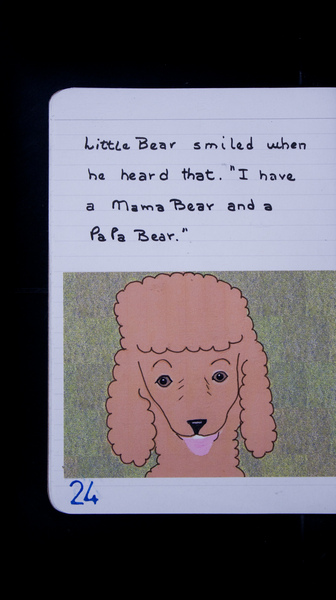 Little Bear smiled when
he heard that. "I have
a Mama Bear and a
PaPa Bear."
24